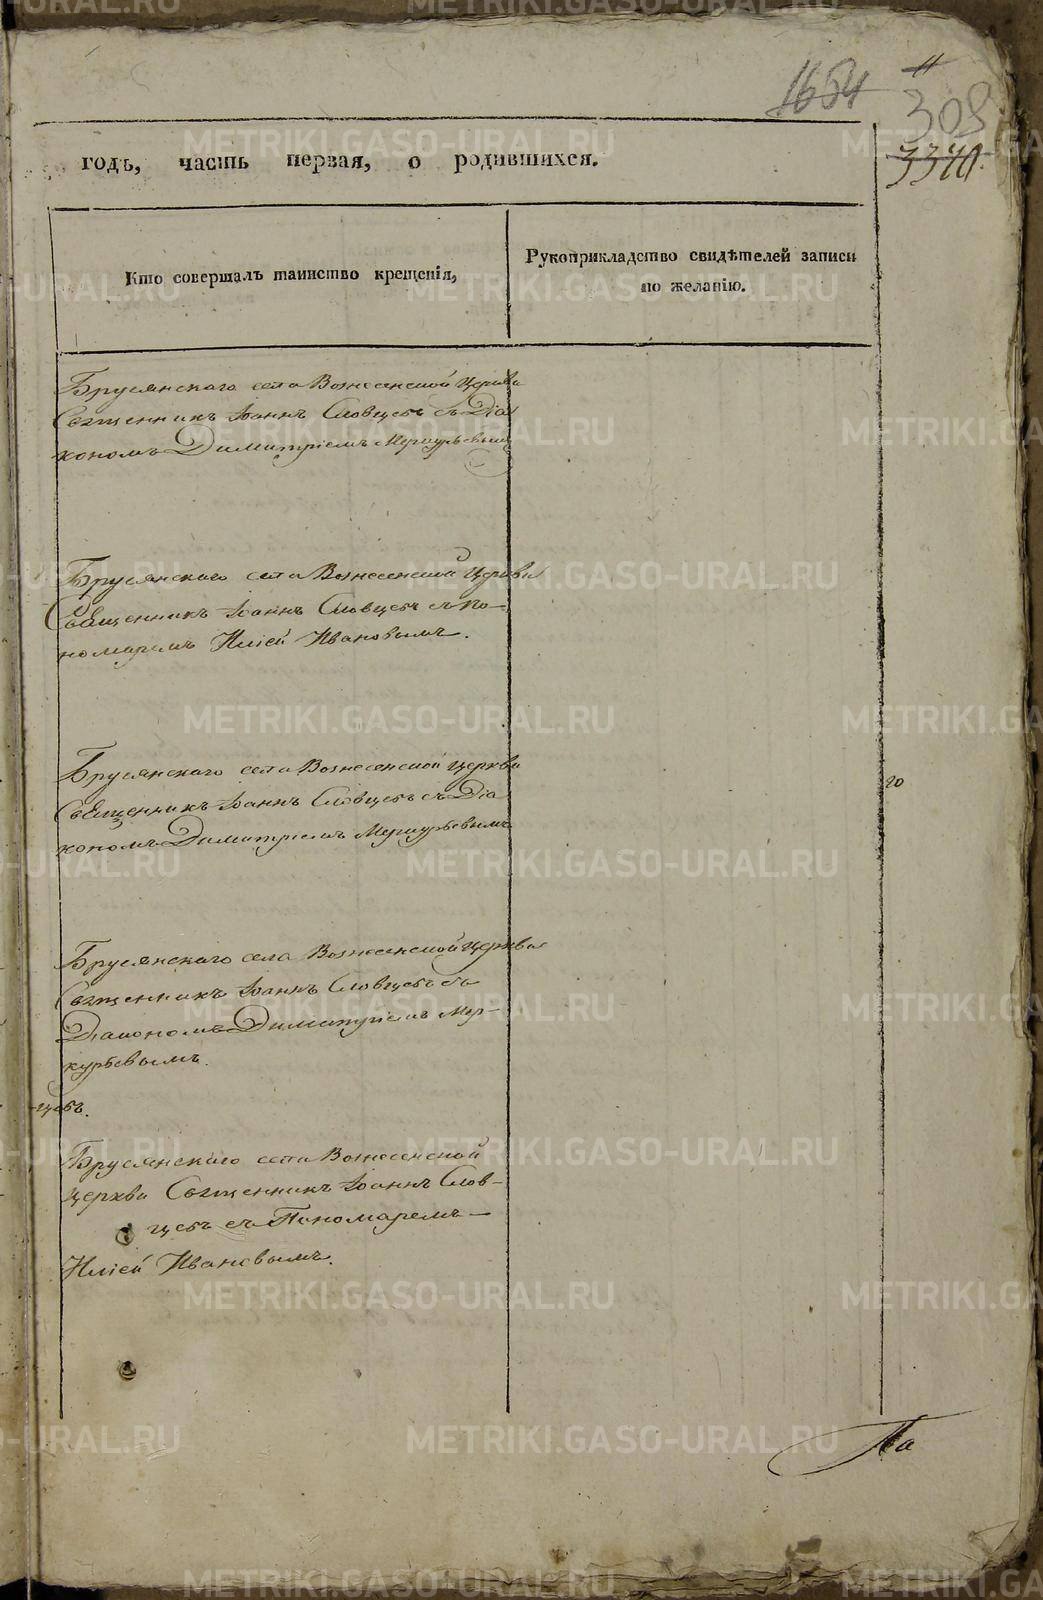 1654
11
309
3370.
годъ, часть первая, о родившихся.
Кто совершалъ таинство крещенія,
Рукоприкладство свидѣтелей записи
по желанію.
Брусянскаго села Вознесенской Церкви
Священникъ Іоаннъ Словцевъ съ Діа
кономъ Димитріемъ Меркурьевымъ
Брусянскаго села Вознесенской Церкви
Священникъ Іоаннъ Словцевъ съ По-
номаремъ Иліей Ивановымъ.
Брусянскаго села Вознесенской Церкви
Священникъ Іоаннъ Словцевъ съ Діа
кономъ Димитріемъ Меркурьевымъ
20
Брусянскаго села Вознесенской Церкви
Священникъ Іоаннъ Словцевъ съ
Діакономъ Димитріемъ Мер-
курьевымъ.
-цевъ.
Брусянскаго села Вознесенской
Церкви Священникъ Іоаннъ Слов-
цевъ съ Пономаремъ
Иліей Ивановымъ.
По
METRIKI.GASO-URAL.RU